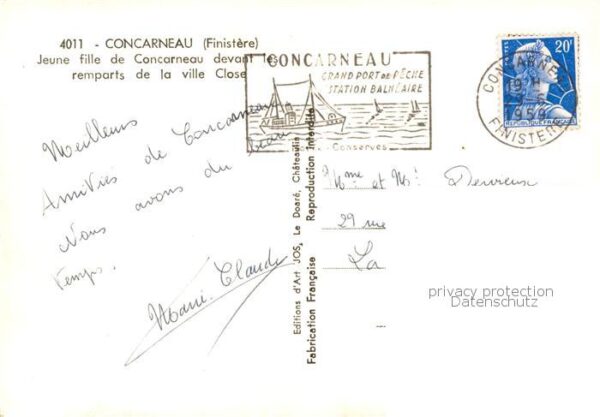 4011 - CONCARNEAU (Finistère)
Jeune fille de Concarneau devant le
remparts de la ville Close
CONCARNEAU
GRAND PORT DE PÊCHE
STATION BALNÉAIRE
Conserves
20F
CONCARNEAU
19 H
1959
FINISTERE
Meilleures
Amitiés de Concarneau
Nous avons du beau
temps.
Marie Claude
Editions d'Art JOS, Le Doaré, Châteaulin
Reproduction Interdite
Fabrication Française
Mme et Mr Devreux
29 rue
La
privacy protection
Datenschutz